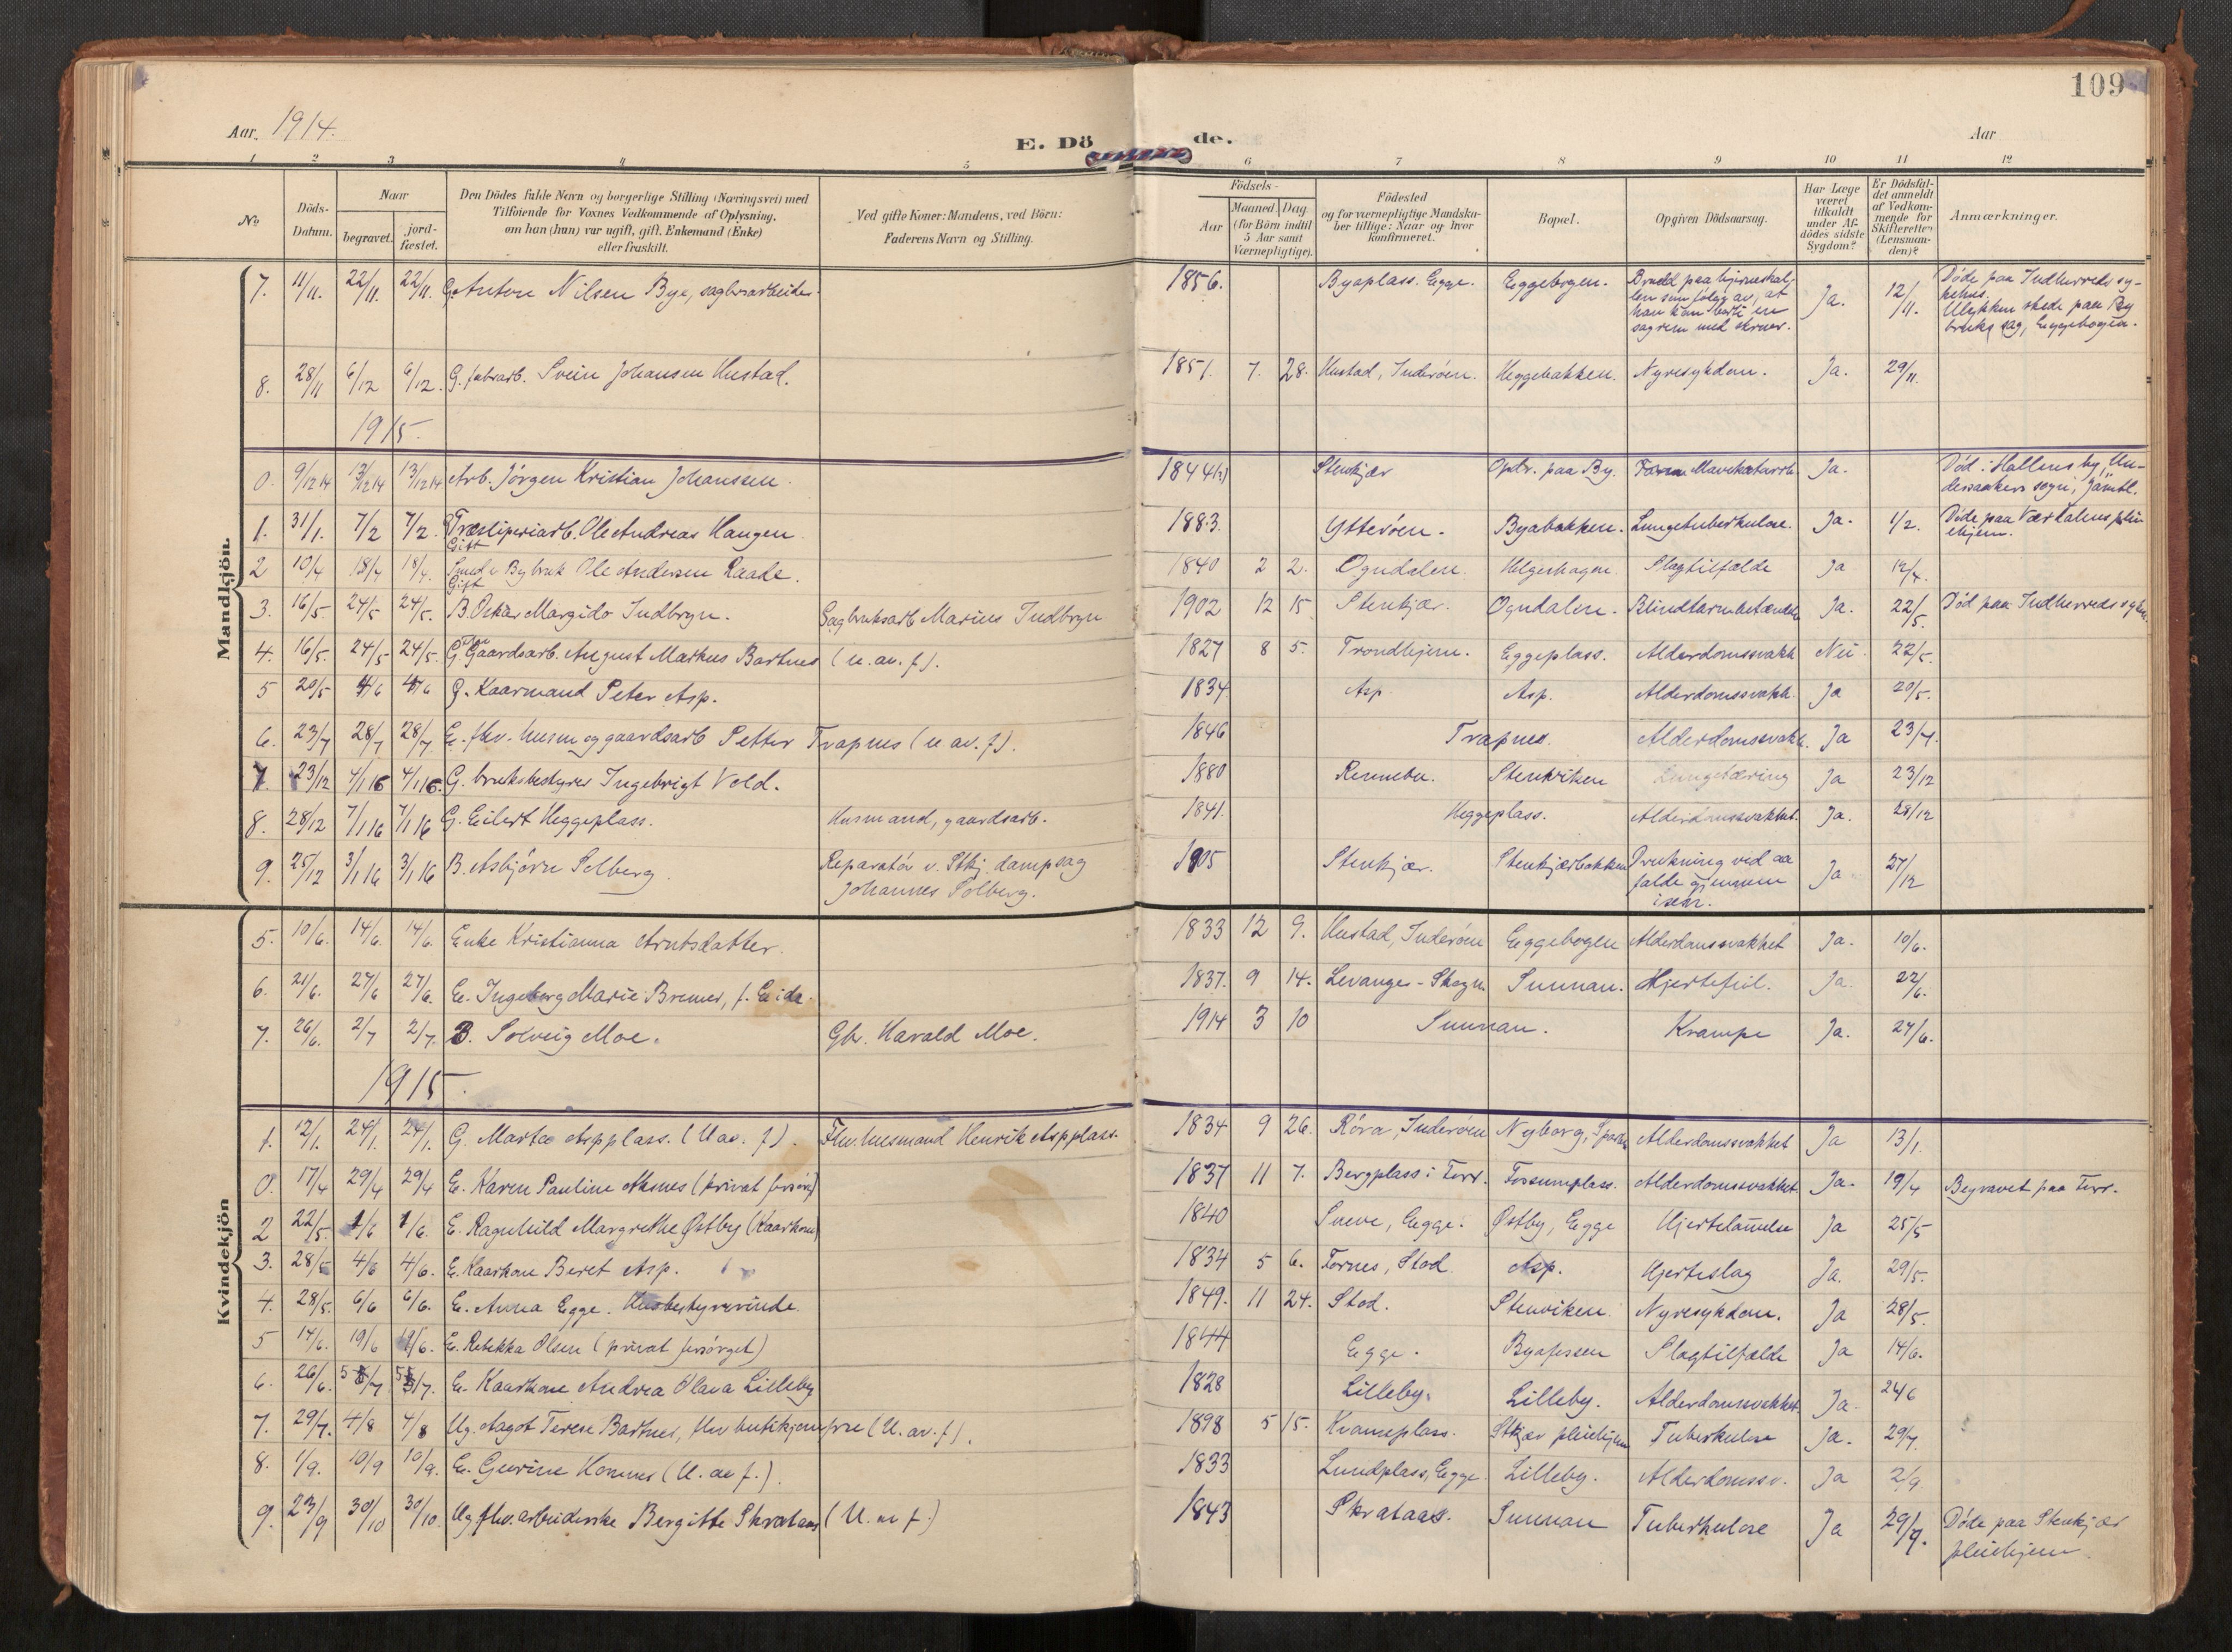 109
Aar. 1914.
E. Dö de.
Aar
1 2 3 4 5 6 7 8 9 10 11 12
№
Döds-Datum.
Naar
begravet.
jord-fæstet.
Den Dödes fulde Navn og borgerlige Stilling (Næringsvei) med
Tilföiende for Voxnes Vedkommende af Oplysning,
om han (hun) var ugift, gift, Enkemand (Enke)
eller fraskilt.
Ved gifte Koner: Mandens, ved Börn:
Faderens Navn og Stilling.
Födsels-
Aar
Maaned. Dag.
(for Börn indtil
5 Aar samt
Værnepligtige).
Födested
og for værnepligtige Mandska-
ber tillige: Naar og hvor
konfirmeret.
Bopæl.
Opgiven Dödsaarsag.
Har Læge
været
tilkaldt
under Af-
dödes sidste
Sygdom?
Er Dödsfal-
det anmeldt
af Vedkom-
mende for
Skifteretten
(Lensman-
den)?
Anmærkninger.
Mandkjön.
7. 11/11. 22/11. 22/11. G. Anton Nilsen Bye, sagbrsarbeider. 1856. Byaplass. Egge. Eggebogen. Brudd paa hjerneskal-
len som følge av, at
han kom borti en
sagrem med skruer. Ja. 12/11. Døde paa Indherreds sy-
kehus.
Ulykken skede paa By
bruks sag, Eggebogen.
8. 28/11 6/12 6/12. G. fabrarb. Svein Johansen Hustad. 1851. 7. 28. Hustad, Inderøen. Heggebakken. Nyresykdom. Ja. 29/11.
1915.
0. 9/12 14 13/12 14 13/12 14 Arb. Jørgen Kristian Johanssen. 1844 Stenkjær Opdr. paa By. Mavekatarrh. Ja. Død i Hallens by, Un-
dersaakers sogn, Jämtl.
1. 31/1. 7/2 7/2. Træsliperiarb. Ole Andreas Haugen. 1883. Ytterøen. Byabakken. Lungetuberkulose. Ja. 1/2. Døde paa Værdalens plei-
ehjem.
Gift
2 10/4 18/4 18/4. Smed v. Bybruk Ole Andersen Raade. 1840 2 2. Ogndalen. Helgeshagen Slagtilfælde Ja 12/4.
Gift
3. 16/5. 24/5 24/5. B. Oskar Margido Indbryn. Sagbruksarb Marius Indbryn 1902 12 15 Stenkjær. Ogndalen. Blindtarmbetændels Ja. 22/5. Død paa Indherreds sykeh.
4. 16/5. 24/5 24/5. G. Gaardsarb. August Markus Bartnes (u. av. f.). 1827 8 5. Trondhjem. Eggeplass. Alderdomssvakh Nei. 22/5.
5 20/5 4/6 4/6 G. Kaarmand Peter Asp. 1834 Asp. Asp. Alderdomssvakh. Ja 20/5.
6. 23/7 28/7 28/7. E. fhv. husm og gaardsarb Petter Trapnes (u av. f). 1846 Trapnes. Alderdomssvakh. Ja 23/7.
7. 23/12 4/1 16 4/1 16. G. bruksbestyrer Ingebrigt Vold. 1880 Rennebu. Stenkviken Lungetæring Ja 23/12
8. 28/12 7/1 16 7/1 16 G. Eilert Heggeplass. Husmand, gaardsarb. 1841. Heggeplass. Alderdomssvakhet. Ja. 28/12
9. 25/12 3/1 16 3/1 16 B. Asbjørn Solberg. Reparatør v. Stkj. dampsag
Johannes Solberg. 1905 Stenkjær. Stenkjærbakken Drukning ved aa
falde gjennem
isen. Ja 27/12
Kvindekjön
5. 10/6. 14/6. 14/6. Enke Kristianna Arntsdatter. 1833 12 9. Hustad, Inderøen Eggebogen Alderdomssvakhet Ja. 10/6.
6. 21/6. 27/6 27/6. E. Ingeborg Marie Bremer, f. Eida. 1837. 9 14. Levanger-Skogn. Sunnan. Hjertefeil. Ja. 22/6.
7. 26/6. 2/7 2/7. B. Solveig Moe. Gbr. Harald Moe. 1914 3 10 Sunnan. Krampe Ja. 27/6.
1915.
1. 12/1. 24/1. 24/1. G. Marta Aspplass. (U av. f). Fhv. husmand Henrik Aspplass. 1834 9 26. Røra, Inderøen Nyborg, Alderdomssvakhet Ja 13/1.
0. 17/4 29/4 29/4 E. Karen Pauline Aksnes (privat forsørg) 1837 11 7. Bergplass i Forr. Fossumplass. Alderdomssvakhet. Ja. 19/4 Begravet paa Forr.
2 22/5. 1/6 1/6. E. Ragnhild Margrethe Østby (Kaarkone) 1840 Sneve, Egge. Østby, Egge Hjertelamelse Ja 25/5
3. 28/5 4/6 4/6. E. Kaarkone Beret Asp. 1834 5 6. Fornes, Stod. Asp. Hjerteslag Ja. 29/5.
4. 28/5. 6/6 6/6. E. Anna Egge. Husbestyrerinde. 1849. 11 24. Stod. Stenviken. Nyresykdom. Ja 28/5.
5 14/6. 19/6 19/6. E. Rebekka Olsen (privat forsørget) 1844 Egge. Byafossen Slagtilfælde Ja 14/6.
6. 26/6. 5/7 5/7. E. Kaarkone Andrea Olava Lilleby 1828 Lilleby. Lilleby. Alderdomssvakhet. Ja
7. 29/7. 4/8 4/8 Ug. Aagot Terese Bartnes, fhv butikjomfru (U. av. f). 1898 5 15. Kvameplass. Stkjær pleiehjem Tuberkulose Ja. 29/7.
8. 1/9. 10/9 10/9. E. Gurine Homnes (U. av f.). 1833 Lundplass, Egge. Lilleby. Alderdomssv. Ja 2/9
9. 23/9 30/10 30/10. Ug. fhv. arbeiderske Bergitte Skrataas (U. av f.) 1843 Skrataas. Sunnan Tuberkulose Ja 29/9. Døde paa Stenkjær
pleiehjem